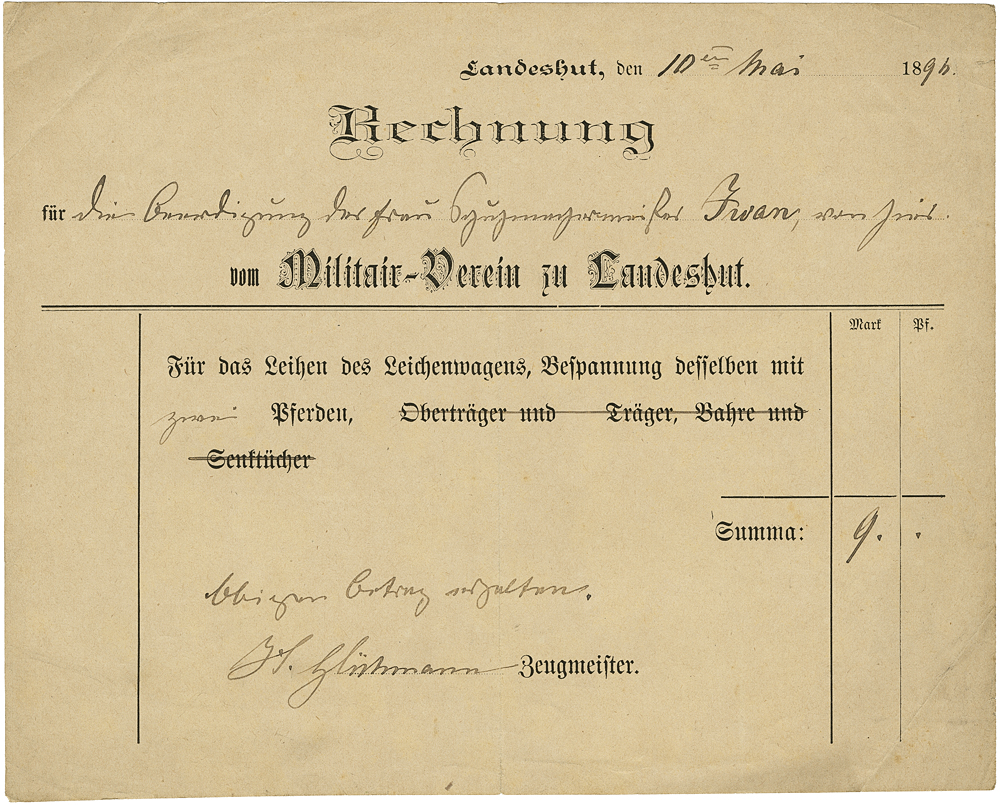 Landeshut, den 10ten Mai 1896.
Rechnung
für die Beerdigung der Frau Schuhmachermeister Iwan, von hier.
vom Militair-Verein zu Landeshut.
Mark Pf.
Für das Leihen des Leichenwagens, Bespannung desselben mit
zwei Pferden, Oberträger und Träger, Bahre und
Senktücher
Summa: 9. .
Obigen Betrag erhalten.
Glühmann Zeugmeister.